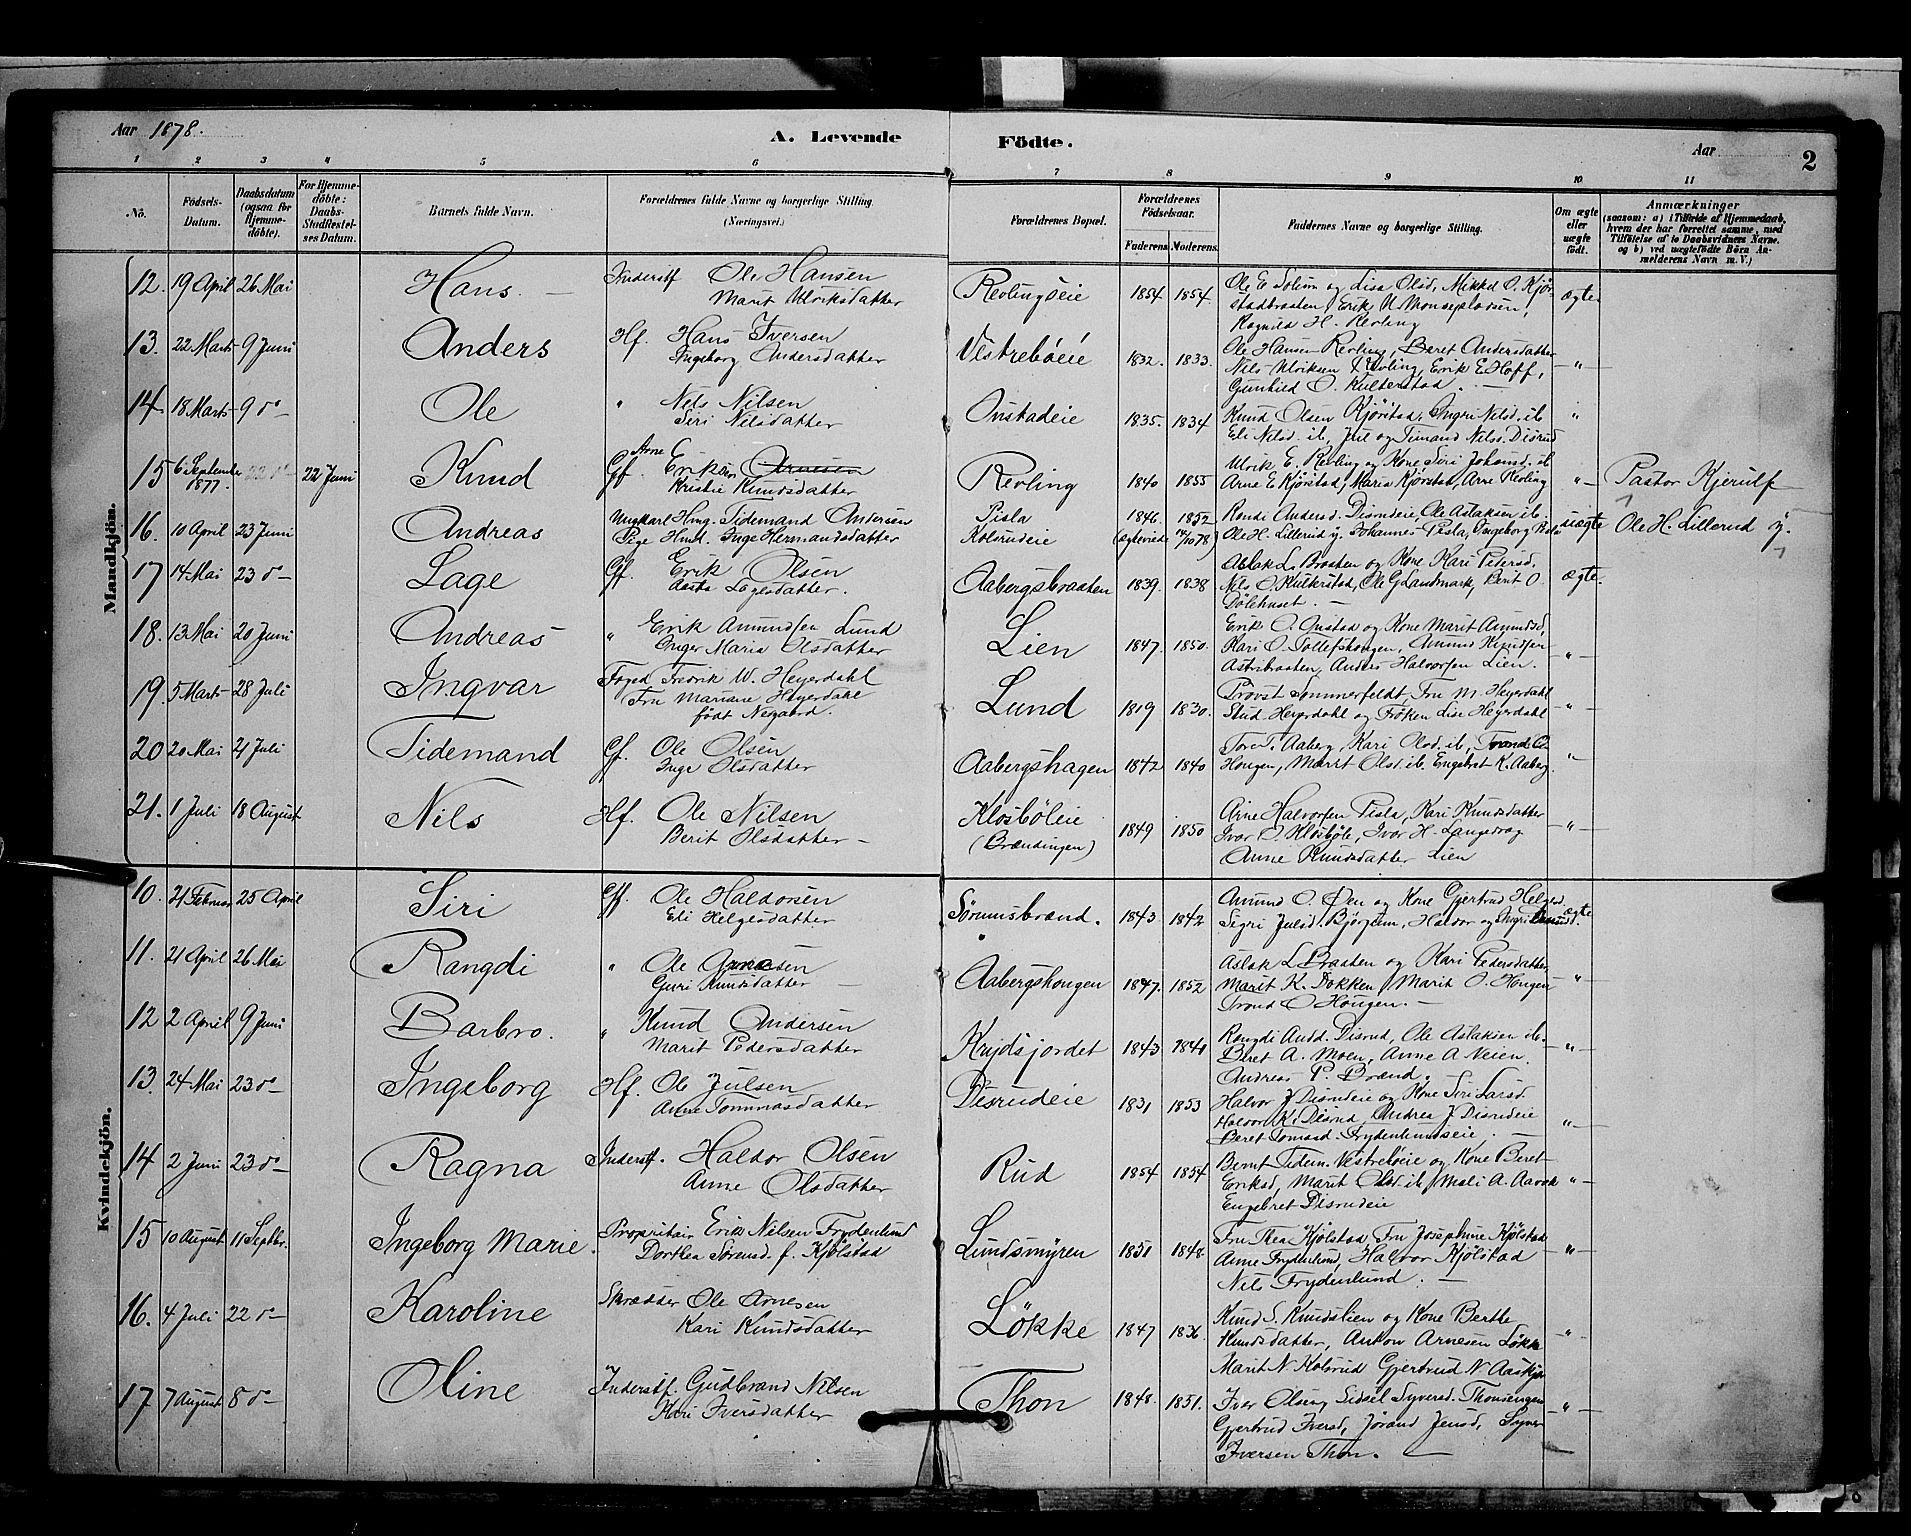 Aar 1878.
A. Levende Födte.
Aar
2
1 2 3 4 5 6 7 8 9 10 11
No. Födsels-Datum. Daabsdatum (ogsaa for Hjemme-döbte). For Hjemme-döbte: Daabs-Stadfæstel-ses Datum. Barnets fulde Navn. Forældrenes fulde Navne og borgerlige Stilling. (Næringsvei.) Forældrenes Bopæl. Forældrenes Födselsaar. Faderens Moderens. Faddernes Navne og borgerlige Stilling. Om ægte eller uægte födt. Anmærkninger (saasom: a) i Tilfælde af Hjemmedaab, hvem der har forrettet samme, med Tilföielse af to Daabsvidners Navne, og b) ved uægtefödte Börn An-melderens Navn m. V.)
Mandkjön.
12. 19 April 26 Mai Hans. Inderstf Ole Hansen
Marit Ulriksdatter Revlingseie 1854 1854 Ole E Solum og Lisa Olsd, Mikkel O. Kjör-
stadbraaten, Erik
Ragnild H. Revling ægte
13. 22 Marts 9 Juni Anders Hf. Hans Iversen
Ingeborg Andersdatter Vestreböeie 1832. 1833. Ole Hansen Revling, Beret Andersdatter
Nils Ulriksen Revling, Erik E. Hoff,
Gunhild O. Kulterstad. — "
14. 18 Marts 9 do Ole " Nels Nilsen
Siri Nilsdatter Onstadeie 1835. 1834 Knud Olsen Kjörstad, Ingri Nilsd. ib.
Eli Nilsd. ib, Jul og Timand Nils. Disrud "
15 6 September 1877. 22 Juni Knud Gf. Arne Eriksen Arnesen
Kristie Knudsdatter Revling 1840 1855 Ulrik E. Revling og Kone Siri Johansd. ib
Arne E Kjörstad, Maria Kjörstad, Arne Revling " Pastor Kjerulf
16. 10 April 23 Juni Andreas Ungkarl Hmg. Tidemand Andersen
Pige Hmd. Inge Hermandsdatter Pisla
Kolsrudeie 1846. 1852
(Ægteviede 14/10 78) Randi Andersd. Disrudeie Ole Aslaksen ib.
Ole H. Lillerud y. Johannes Pisla, Ingeborg Pisla uægte Ole H. Lillerud y.
17 14 Mai 23 do Lage Gf. Erik Olsen
Aaste Lagesdatter. Aabergsbraaten 1839 1838 Aslak L. Braaten og Kone Kari Petersd.
Nils O. Kulterstad, Ole G Landmark, Berit O.
Dölehuset. — ægte.
18. 13 Mai 20 Juni Andreas " Erik Amundsen Lund
Inger Maria Olsdatter Lien 1847. 1850. Erik O. Onstad og Kone Marit Amundsd,
Kari O. Tollefshougen, Amund Knudsen
Astribraaten, Anders Halvorsen Lien. "
19. 5 Marts 28 Juli Ingvar Foged Fredrik W. Heyerdahl
Fru Mariane Heyerdahl
født Negaard. Lund 1819 1830. Provst Sommerfeldt, Fru M. Heyerdahl
Stud Heyerdahl og Frøken Lise Heyerdahl "
20 20 Mai 21 Juli Tidemand Gf. Ole Olsen
Inge Olsdatter Aabergshagen 1842 1840 Tore T. Aaberg, Kari Olsd. ib, Trond O.
Hougen, Marit Olsd. ib. Engebret K. Aaberg. "
21. 1 Juli 18 August Nils Hf. Ole Nilsen
Berit Olsdatter — Klosböleie
(Brændingen) 1849 1850 Arne Halvorsen Pisla, Kari Knudsdatter
Ivar O. Klosböle, Ivar H. Langedrag
Anne Knudsdatter Lien "
Kvindekjön.
10. 21 Februar 25 April Siri Gf. Ole Haldorsen
Eli Helgesdatter Sörumsbrænd. 1843 1842 Amund O. Øen og Kone Gjertrud Helgesd.
Sigri Julsd. Björglum, Haldor og Ingri ægte
11. 21 April 26 Mai Rangdi " Ole Arnesen
Guri Knudsdatter — Aabergshougen 1847. 1852 Aslak L Braaten og Kari Pedersdatter,
Marit K. Dokken, Marit O. Hougen
Trond O Hougen. — "
12 2 April 9 Juni Barbro. " Knud Andersen
Marit Pedersdatter Krydsjordet 1843 1841 Rangdi Andd. Disrud, Ole Aslaksen ib.
Beret A. Moen, Anne A Veien.
Andreas P. Brænd. "
13. 24 Mai 23 do Ingeborg Hf. Ole Julsen
Anne Tommasdatter Disrudeie 1831 1853 Halvor J Disrudeie og Kone Siri Larsd.
Halvor K. Disrud, Andrea J Disrudeie
Beret Tomasd. Frydenlundseie. "
14 2 Juni 23 do Ragna Inderstf. Haldor Olsen
Anne Olsdatter Rud 1854 1854 Bernt Tidem. Vestreböeie og Kone Beret
Eriksd, Marit Olsd. ib, Mali A. Aavok
Engebret Disrudeie "
15 10 August 11 Septbr. Ingeborg Marie. Proprietair Erik Nilsen Frydenlund
Dorthea Sørensd. f. Kjölstad Lundsmyren 1851 1848. Fru Thea Kjölstad, Fru Josephine Kjölstad
Anne Frydenlund, Halvor Kjölstad
Nils Frydenlund. — "
16. 4 Juli 22 do Karoline Skrædder Ole Arnesen
Kari Knudsdatter Lökke 1847 1836. Knud S. Knudslien og Kone Berthe
Knudsdatter, Anton Arnesen Løkke
Marit N Kolsrud Gjertrud N "
17 7 August 8 do Oline Inderstf. Gudbrand Nilsen
Kari Iversdatter Thon 1848. 1851. Ivar Olsen, Sidsel Syversd. Thonsengen
Gjertrud Iversd, Jörand Jensd, Syver
Iversen Thon. — "